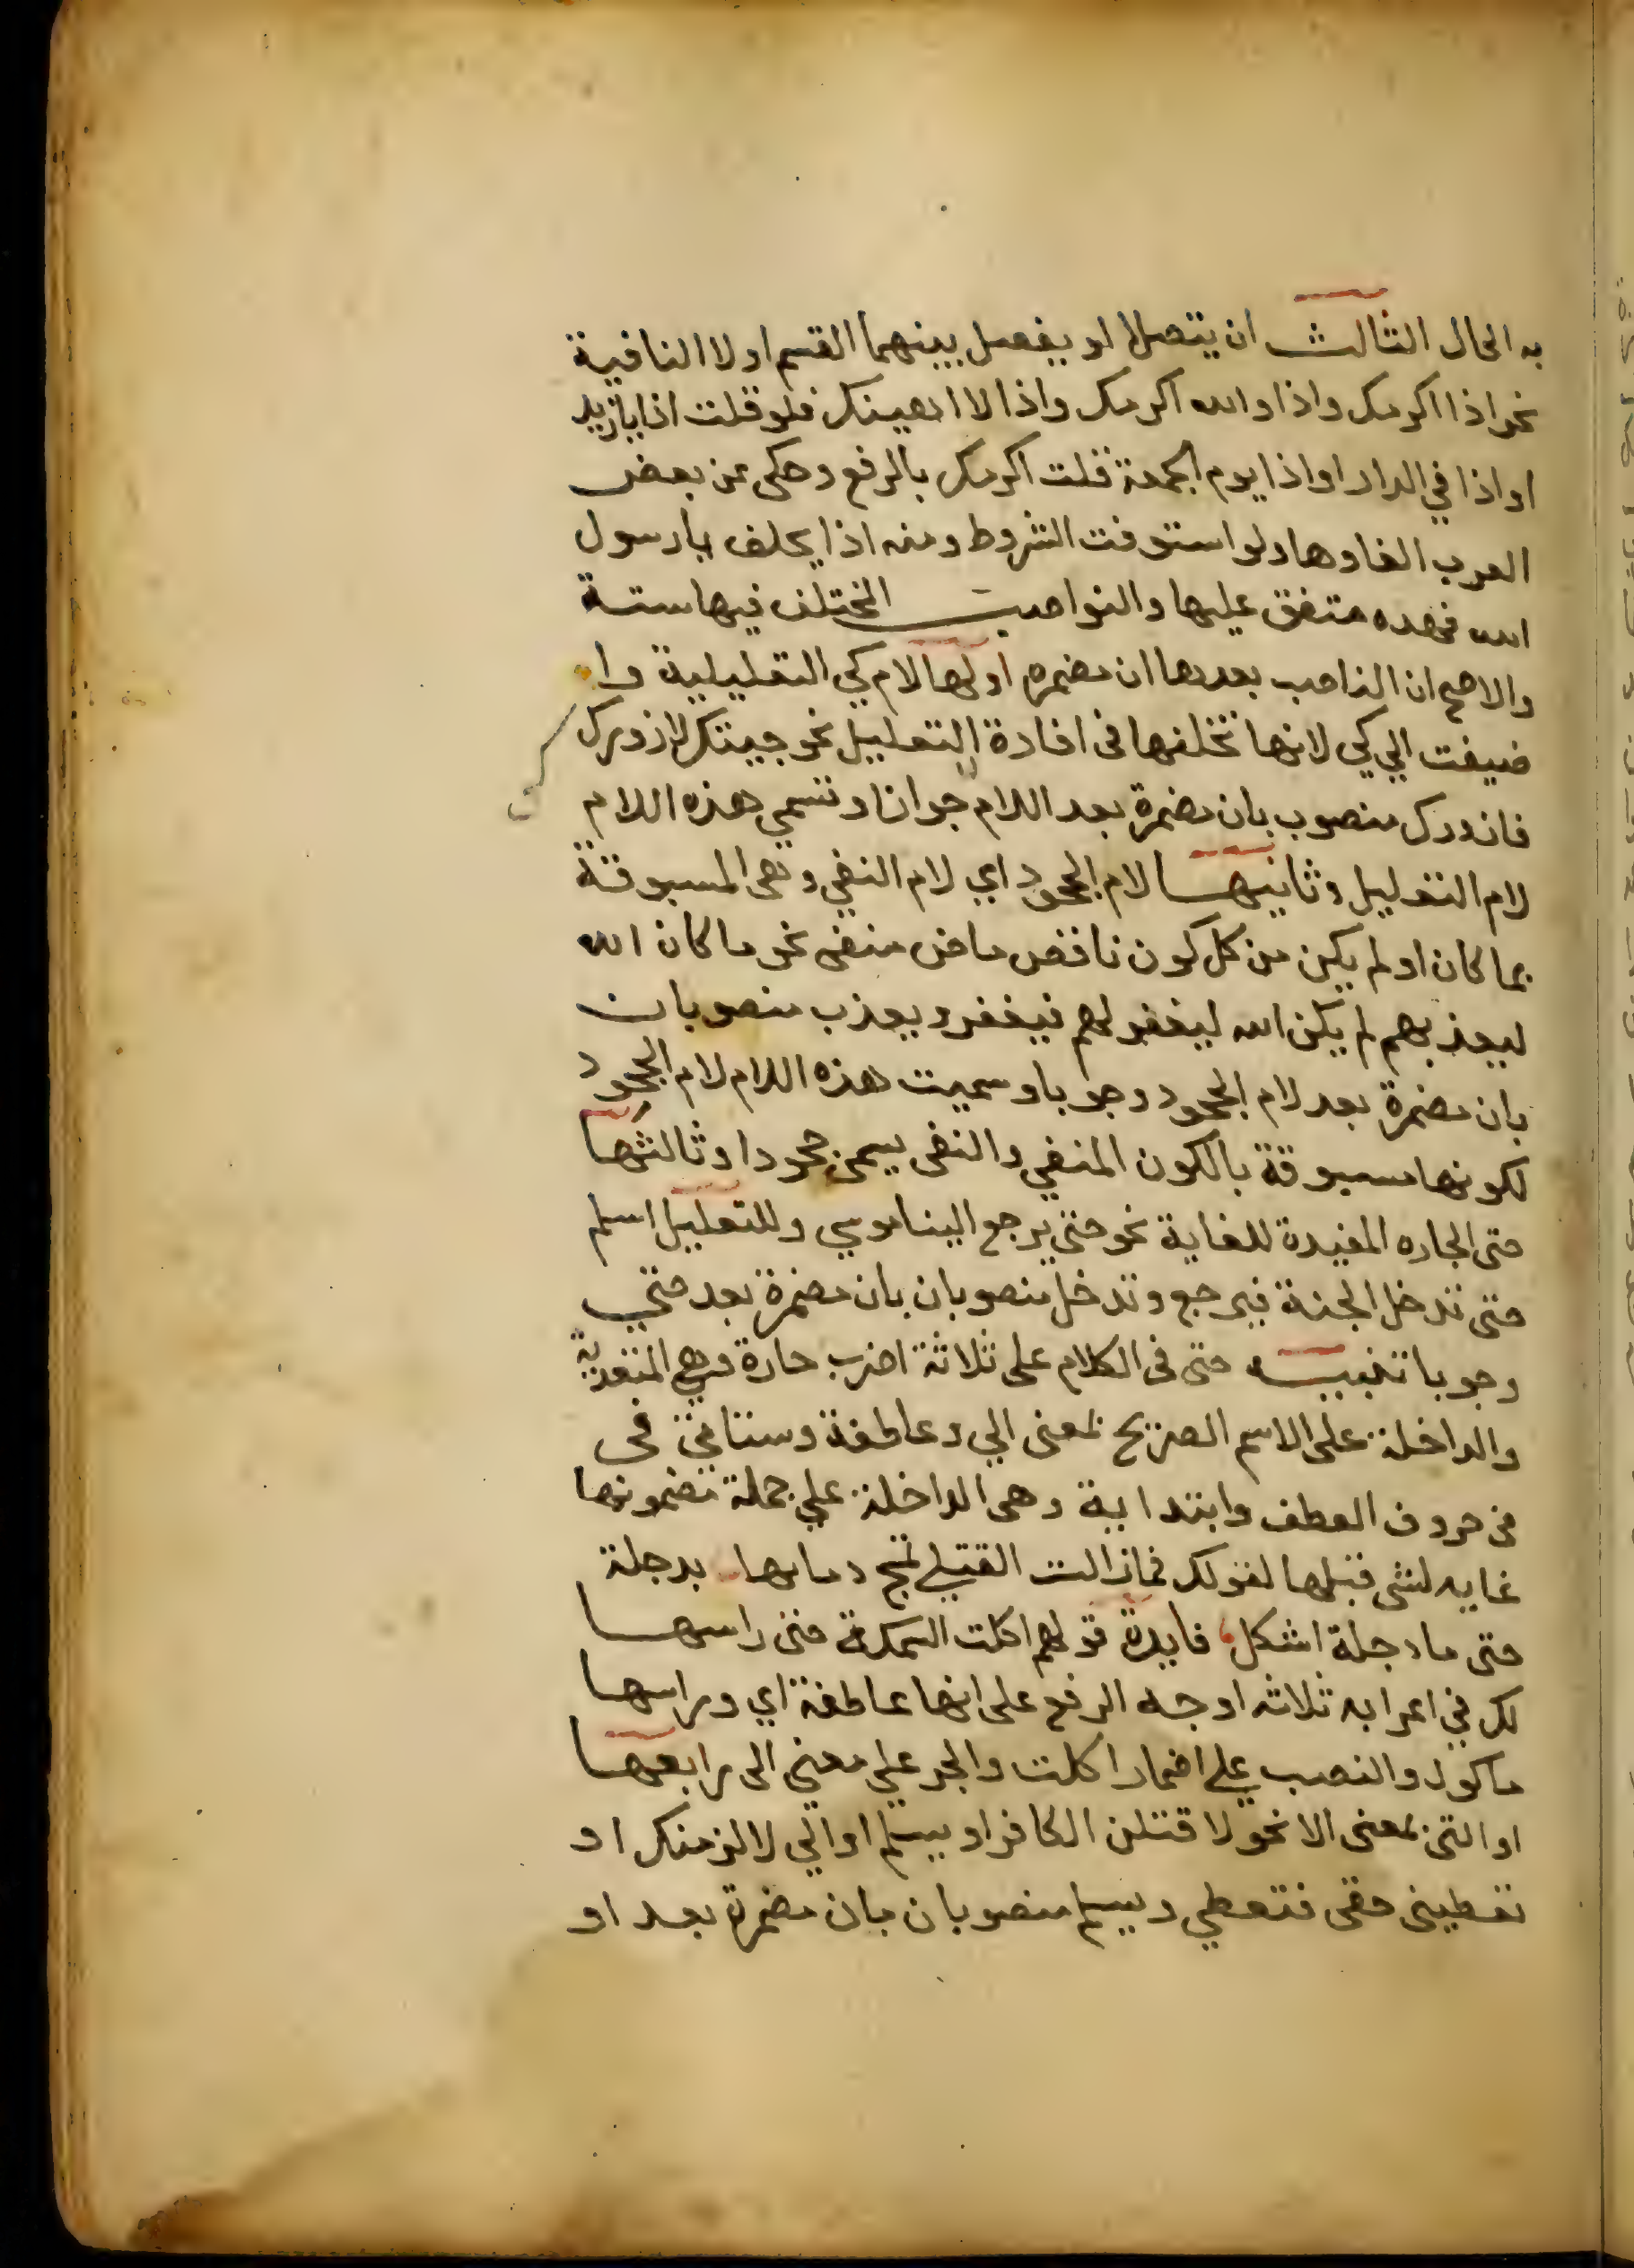 به الحال الثالث ان يتصلا او يفصل بينهما القسم او لا النافية
نحو اذا اكرمك واذا والله اكرمك واذا لا اهينك فلو قلت اذا يازيد
او اذا في الدار او اذا يوم الجمعة قلت اكرمك بالرفع وحكى عن بعض
العرب الغاوها ولو استوفت الشروط ومنه اذا يحلف يارسول
الله فهده متفق عليها والنواصب المختلف فيها ستة
والاصح ان الناصب بعدها ان مضمره اولها لام كي التعليلية وا
ضيفت الي كي لانها تخلفها في افادة التعليل نحو جيتك لازورك
فازورك منصوب بان مضمرة بعد اللام جوازا وتسمي هذه اللام
لام التعليل وثانيها لام الجحود اي لام النفي وهي المسبوقة
بما كان او لم يكن من كل كون ناقص ماض منفى نحو ما كان الله
ليعذبهم لم يكن الله ليغفر لهم فيغفر ويعذب منصوبان
بان مضمرة بعد لام الجحود وجوبا وسميت هذه اللام لام الجحود
لكونها مسبوقة بالكون المنفي والنفى يسمى جحودا وثالثها
حتى الجاره المفيدة للغاية نحو حتى يرجع الينا موسي وللتعليل اسلم
حتى تدخل الجنة فيرجع وتدخل منصوبان بان مضمرة بعد حتي
وجوبا تنبيه حتى فى الكلام على ثلاثة اضرب جارة وهي المتقدمة
والداخلة على الاسم الصريح بمعنى الي وعاطفة وستاتي في
في حروف العطف وابتدايية وهى الداخلة علي جملة مضمونها
غايه لشى قبلها لقولك فمازالت القتلي تمج دماءها بدجلة
حتى ماء دجلة اشكل فايدة قولهم اكلت السمكة حتى راسها
لك في اعرابه ثلاثه اوجه الرفع على انها عاطفة اي وراسها
ماكول والنصب علي اضمار اكلت والجر علي معني الى رابعها
او التى بمعنى الا نحو لا قتلن الكافر او يسلم او الي لالزمنك او
تعطينى حقى فتعطي ويسلم منصوبان بان مضمرة بعد او